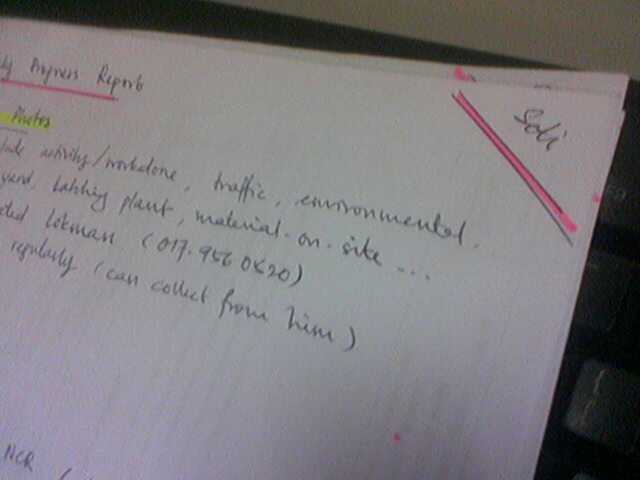 Soli
Progress Reports
Photos
activity/workdone, traffic, environmental.
yard, batching plant, material-on-site ...
Lokman (017.956 0820)
regularly (can collect from him)
NCR (